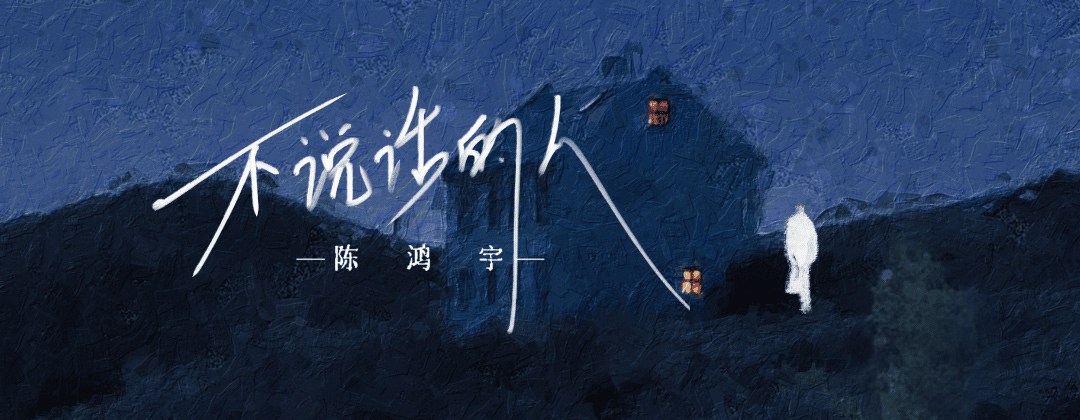 不说话的人
—陈鸿宇—